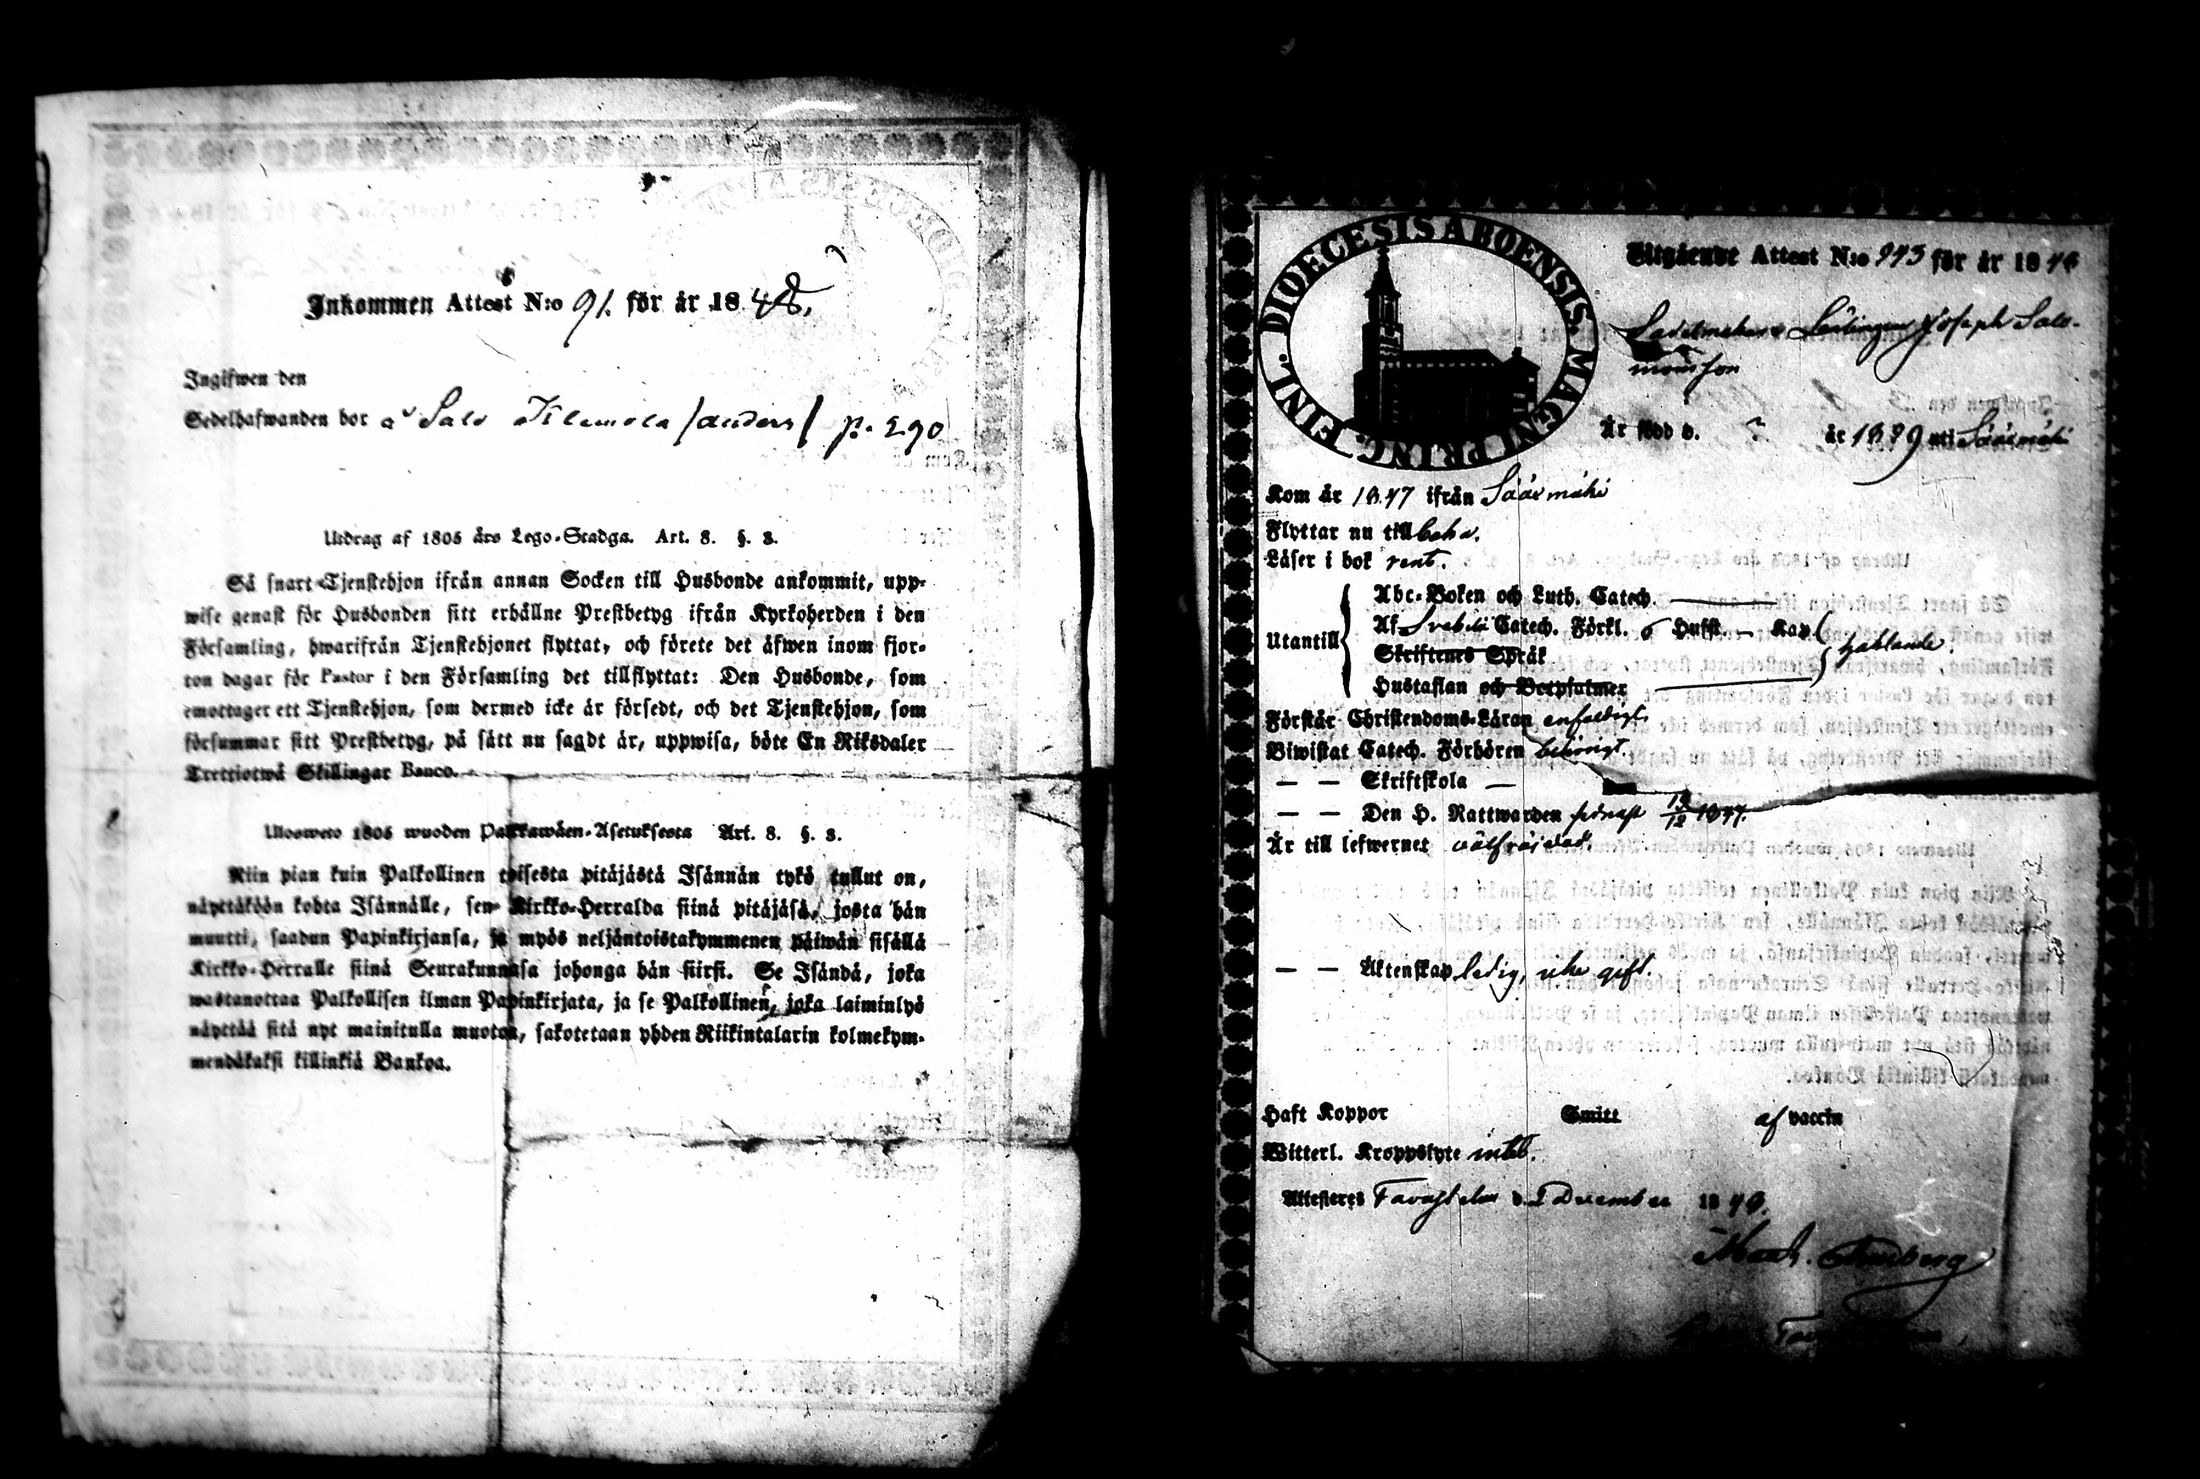 Inkommen Attest N:o 91. för år 1848,
Ingifwen den
Sedelhafwanden bor å Salo Kilemola /anders/ p. 290
Utdrag af 1805 års Lego-Stadga. Art. 8. §. 3.
Så snart Tjenstehjon ifrån annan Socken till Husbonde ankommit, upp-
wise genast för Husbonden sitt erhållne Prestbetyg ifrån Kyrkoherden i den
Församling, hwarifrån Tjenstehjonet flyttat, och förete det äfwen inom fjor-
ton dagar för Pastor i den Församling det tillflyttat: Den Husbonde, som
emottager ett Tjenstehjon, som dermed icke är försedt, och det Tjenstehjon, som
försummar sitt Prestbetyg, på sätt nu sagdt är, uppwisa, böte En Riksdaler
Trettiotwå Skillingar Banco.
Ulosweto 1805 wuoden Palkkawäen-Asetuksesta Art. 8. §. 3.
Niin pian kuin Palkollinen toisesta pitäjästä Isännän tykö tullut on,
näyttäköön kohta Isännälle, sen Kirkko-Herralda siinä pitäjäsä, josta hän
muutti, saadun Papinkirjansa, ja myös neljäntoistakymmenen päiwän sisällä
Kirkko-Herralle siinä Seurakunnasa johonga hän siirsi. Se Isändä, joka
wastanottaa Palkollisen ilman Papinkirjata, ja se Palkollinen, joka laiminlyö
näyttää sitä nyt mainitulla muoton, sakotetaan yhden Riikintalarin kolmekym-
mendäkaksi killinkiä Bankoa.
DIOECESIS ABOENSIS. MAGNI PRINC. FINL.
Utgående Attest N:o 943 för år 1848
Sadelmakare Lärlingen Joseph Salo-
monsson
Är född d. ? år 1829 uti Sääxmäki
Kom år 1847 ifrån Sääxmäki
Flyttar nu till
Läser i bok rent.
Utantill
Abc-Boken och Luth. Catech.
Af Svebilii Catech. Förkl. 6 Hufst. — Kap
Skriftenes Språk
hjablande.
Hustaflan och Botpsalmer
Förstår Christendoms-Läran enfaldigt.
Biwistat Catech. Förhören behörigt
— — Skriftskola —
— — Den H. Nattwarden sednast 19/12 1847.
Är till lefwernet välfräjdad.
— — Äktenskap ledig, icke gift.
Haft Koppor Smitt af vaccin
Witterl. Kroppslyte intet.
Attesteras Tavastehus d. 1 December 1848.